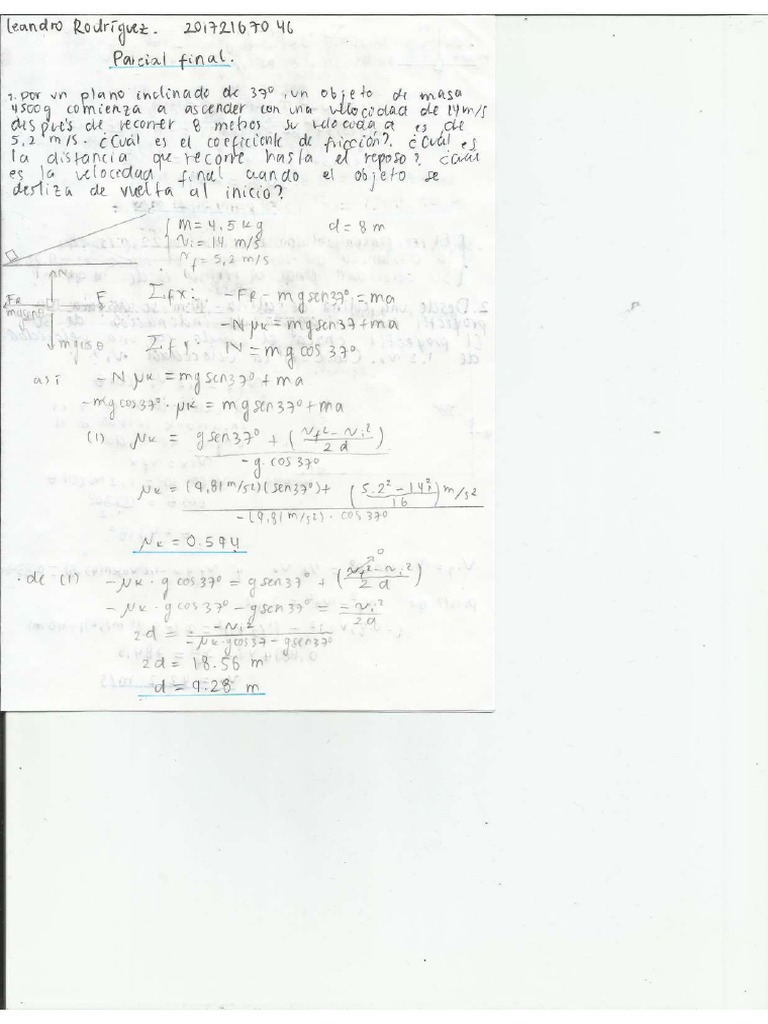 Leandro Rodríguez. 20172167046
Parcial final.
1. Por un plano inclinado de 37°, un objeto de masa
4500g comienza a ascender con una velocidad de 14m/s
después de recorrer 8 metros su velocidad es de
5,2 m/s. ¿Cuál es el coeficiente de fricción? ¿Cuál es
la distancia que recorre hasta el reposo? ¿cuál
es la velocidad final cuando el objeto se
desliza de vuelta al inicio?
M = 4,5 kg d = 8 m
Vi = 14 m/s
Vf = 5,2 m/s
N
FR F
mg senθ
mg cosθ
Σfx: -FR - mg sen37° = ma
-N μk = mg sen37 + ma
Σfy: N = mg cos 37°
así -N μk = mg sen37° + ma
-mg cos37° · μk = mg sen37° + ma
(1) μk = g sen37° + (vf² - vi² / 2d) / -g · cos 37°
μk = (9,81 m/s²)(sen37°) + (5.2² - 14² / 16) m/s² / -(9,81 m/s²) · cos37°
μk = 0.594
· de (1) -μk · g cos37° = g sen37° + (vf² - vi² / 2d) 0
-μk · g cos37° - g sen37° = -vi² / 2d
2d = -vi² / -μk · g cos37 - g sen37°
2d = 18.56 m
d = 9.28 m